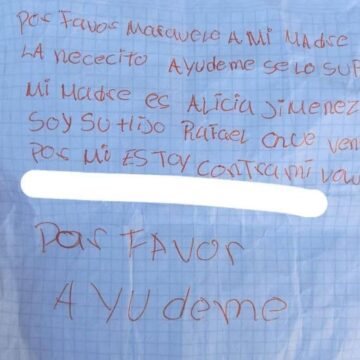 Por Favor Marquele A Mi Madre
LA nececito Ayudeme se lo sup
Mi Madre es Alicia Jimenez
soy su Hijo Rafael que ven
por mi Estoy contra mi volu
por FAVOR
AYUdeme